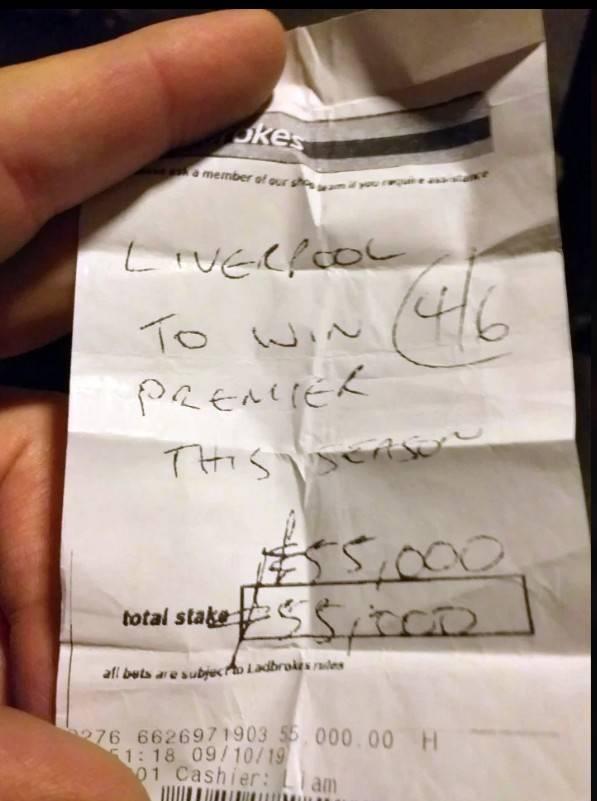 okes
ask a member of our shop team if you require assistance
LIVERPOOL
TO WIN (4/6
PREMIER
THIS SEASON
£55,000
total stake £55,000
all bets are subject to Ladbrokes rules
0276 6626971903 55,000.00 H
51:18 09/10/19
01 Cashier: Liam